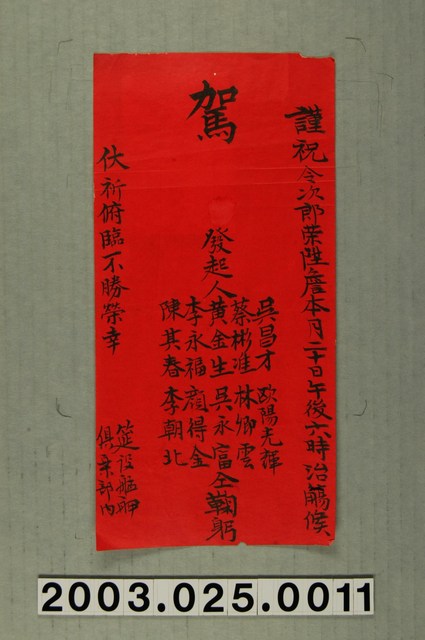 謹祝令次郎荣陞詹本月二十日午後六時治觴候
駕
發起人
吳昌才 歐陽光輝
蔡彬淮 林卿雲
黄金生 吳永富 仝鞠躬
李永福 顏得金
陳其春 李朝北
伏祈俯臨不勝榮幸
筵设艋舺
俱楽部内
2003.025.0011